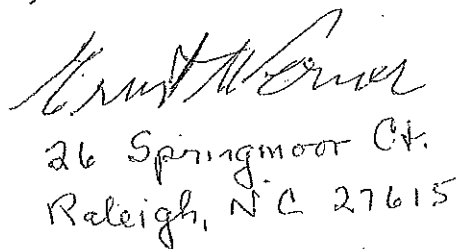 Ernst Werner
26 Springmoor Ct.
Raleigh, NC 27615